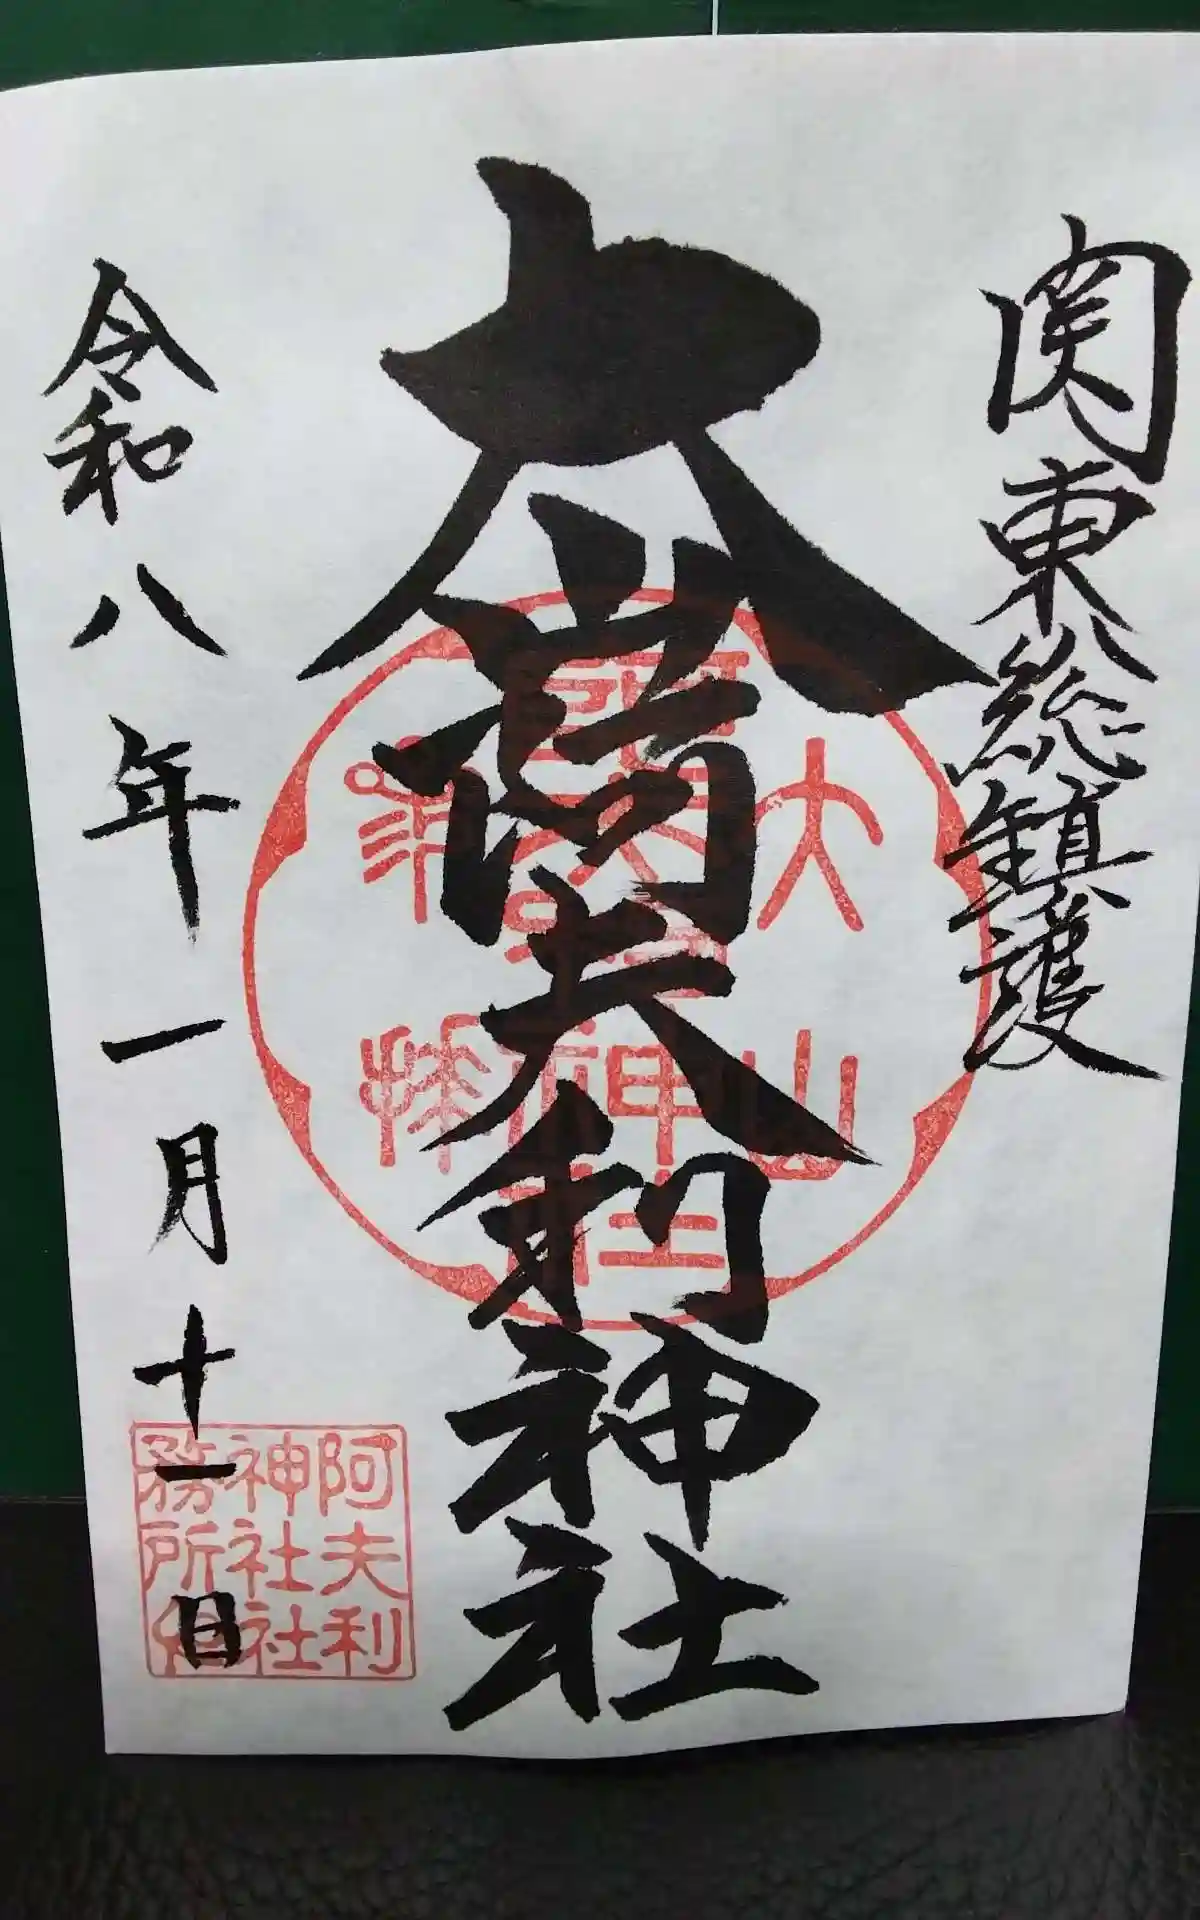 関東総鎮護
大山阿夫利神社
令和八年一月十一日
大山
阿夫利
神社社
務所印